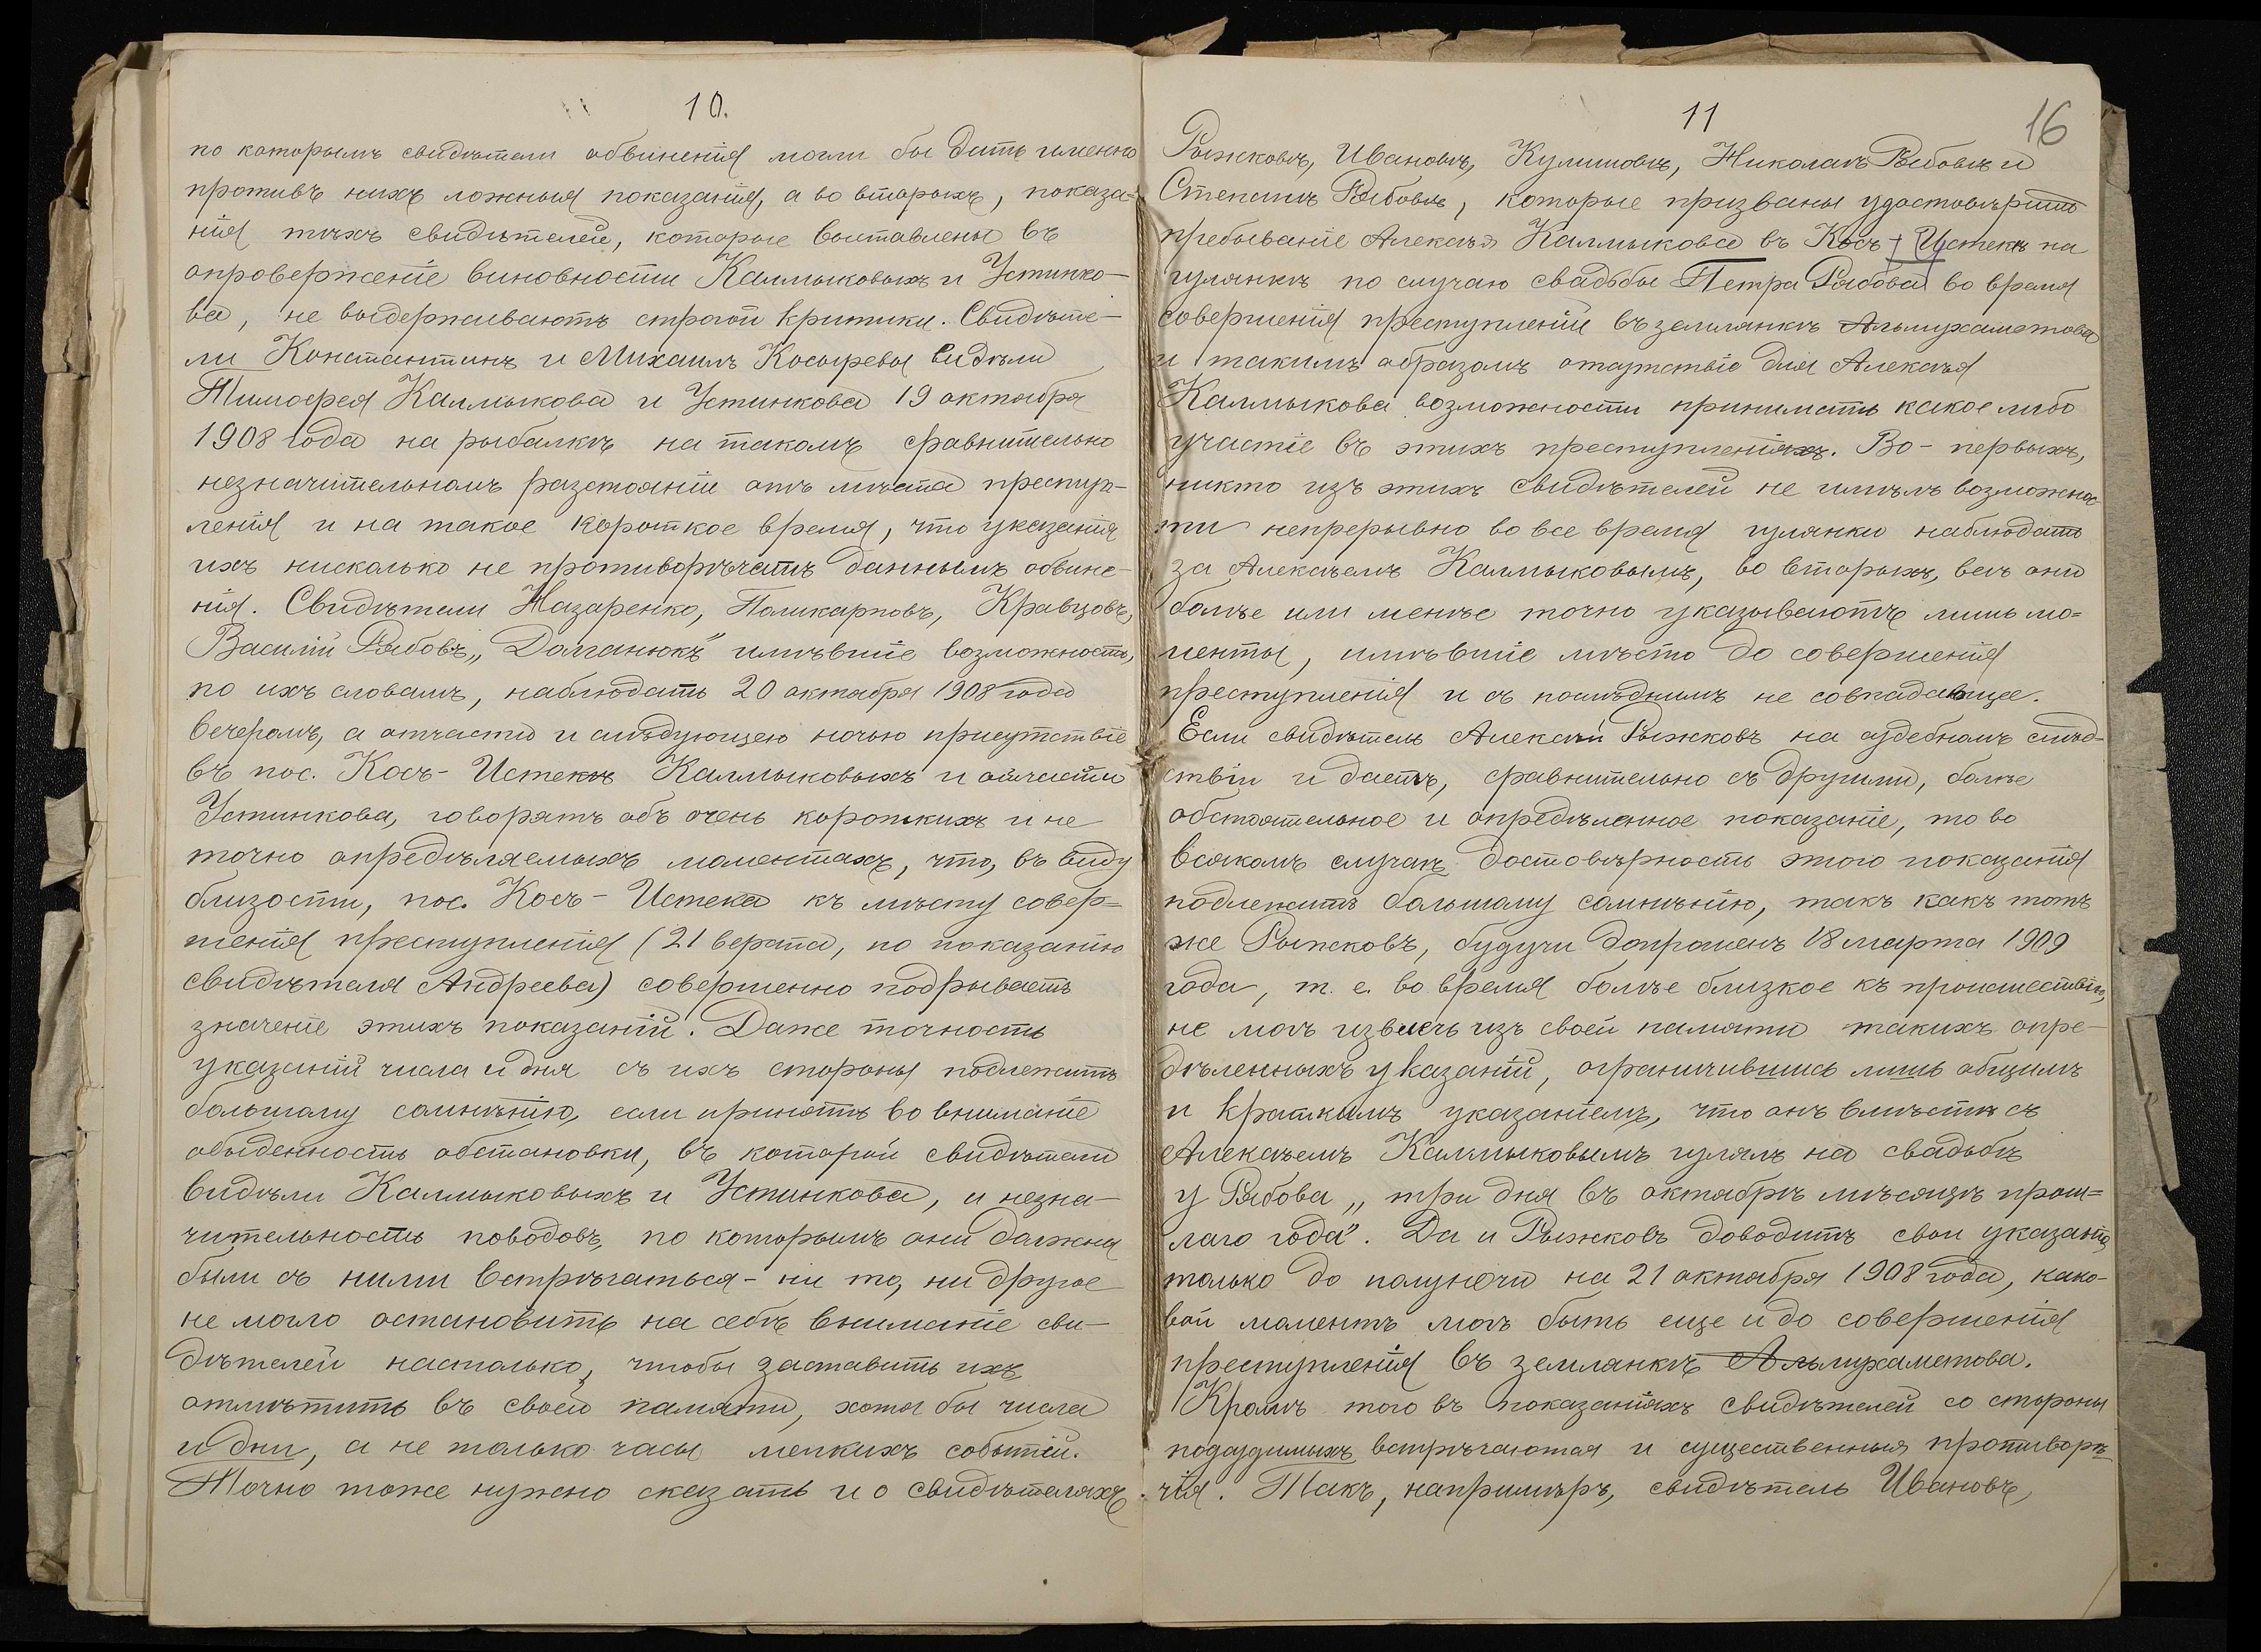 10.
по которымъ свидѣтели обвиненія могли бы дать именно
противъ нихъ ложныя показанія, а во вторыхъ, показа-
нія тѣхъ свидѣтелей, которые выставлены въ
опроверженіе виновности Калмыковыхъ и Устинко-
ва, не выдерживаютъ строгой критики. Свидѣте-
ли Константинъ и Михаилъ Косыревы видѣли
Тимофея Калмыкова и Устинкова 19 октября
1908 года на рыбалкѣ на такомъ сравнительно
незначительномъ разстояніи отъ мѣста преступ-
ленія и на такое короткое время, что указанія
ихъ нисколько не противорѣчатъ даннымъ обвине-
нія. Свидѣтели Назаренко, Поликарповъ, Кравцовъ,
Василій Рябовъ, „Доманюкъ" имѣвшіе возможность,
по ихъ словамъ, наблюдать 20 октября 1908 года
вечеромъ, а отчасти и слѣдующею ночью присутствіе
въ пос. Косъ-Истекѣ Калмыковыхъ и отчасти
Устинкова, говорятъ объ очень короткихъ и не
точно опредѣляемыхъ моментахъ, что, въ виду
близости, пос. Косъ-Истека къ мѣсту совер=
шенія преступленія (21 верста, по показанію
свидѣтеля Андреева) совершенно подрываетъ
значеніе этихъ показаній. Даже точность
указаній числа и дня съ ихъ стороны подлежитъ
большому сомнѣнію, если принять во вниманіе
обыденность обстановки, въ которой свидѣтели
видѣли Калмыковыхъ и Устинкова, и незна-
чительность поводовъ, по которымъ они должны
были съ ними встрѣчаться - ни то, ни другое
не могло остановить на себѣ вниманіе сви-
дѣтелей настолько, чтобы заставить ихъ
отмѣтить въ своей памяти, хотя бы числа
и дни, а не только часы мелкихъ событій.
Точно тоже нужно сказать и о свидѣтеляхъ
11
16
Рыжковѣ, Ивановѣ, Кулишовѣ, Николаѣ Рябовѣ и
Степанѣ Рябовѣ, которые призваны удостовѣрить
пребываніе Алексѣя Калмыкова въ Косъ-Истекѣ на
гулянкѣ по случаю свадьбы Петра Рябова во время
совершенія преступленій въ землянкѣ Альмухаметова
и такимъ образомъ отсутствіе для Алексѣя
Калмыкова возможности принимать какое либо
участіе въ этихъ преступленіяхъ. Во-первыхъ,
никто изъ этихъ свидѣтелей не имѣлъ возможнос
ти непрерывно во все время гулянки наблюдать
за Алексѣемъ Калмыковымъ, во вторыхъ, всѣ они
болѣе или менѣе точно указываютъ лишь мо=
менты, имѣвшіе мѣсто до совершенія
преступленія и съ послѣднимъ не совпадающее.
Если свидѣтель Алексѣй Рыжковъ на судебномъ слѣд-
ствіи и даетъ, сравнительно съ другими, болѣе
обстоятельное и опредѣленное показаніе, то во
всякомъ случаѣ достовѣрность этого показанія
подлежитъ большому сомнѣнію, такъ какъ тотъ
же Рыжковъ, будучи допрошенъ 18 марта 1909
года, т. е. во время болѣе близкое къ происшествію,
не могъ извлечь изъ своей памяти такихъ опре-
дѣленныхъ указаній, ограничившись лишь общимъ
и краткимъ указаніемъ, что онъ вмѣстѣ съ
Алексѣемъ Калмыковымъ гулялъ на свадьбѣ
у Рябова „три дня въ октябрѣ мѣсяцѣ прош=
лаго года". Да и Рыжковъ доводитъ свои указанія
только до полуночи на 21 октября 1908 года, како-
вой моментъ могъ быть еще и до совершенія
преступленія въ землянкѣ Альмухаметова.
Кромѣ того въ показаніяхъ свидѣтелей со стороны
подсудимыхъ встрѣчаются и существенныя противорѣ
чія. Такъ, напримѣръ, свидѣтель Ивановъ,